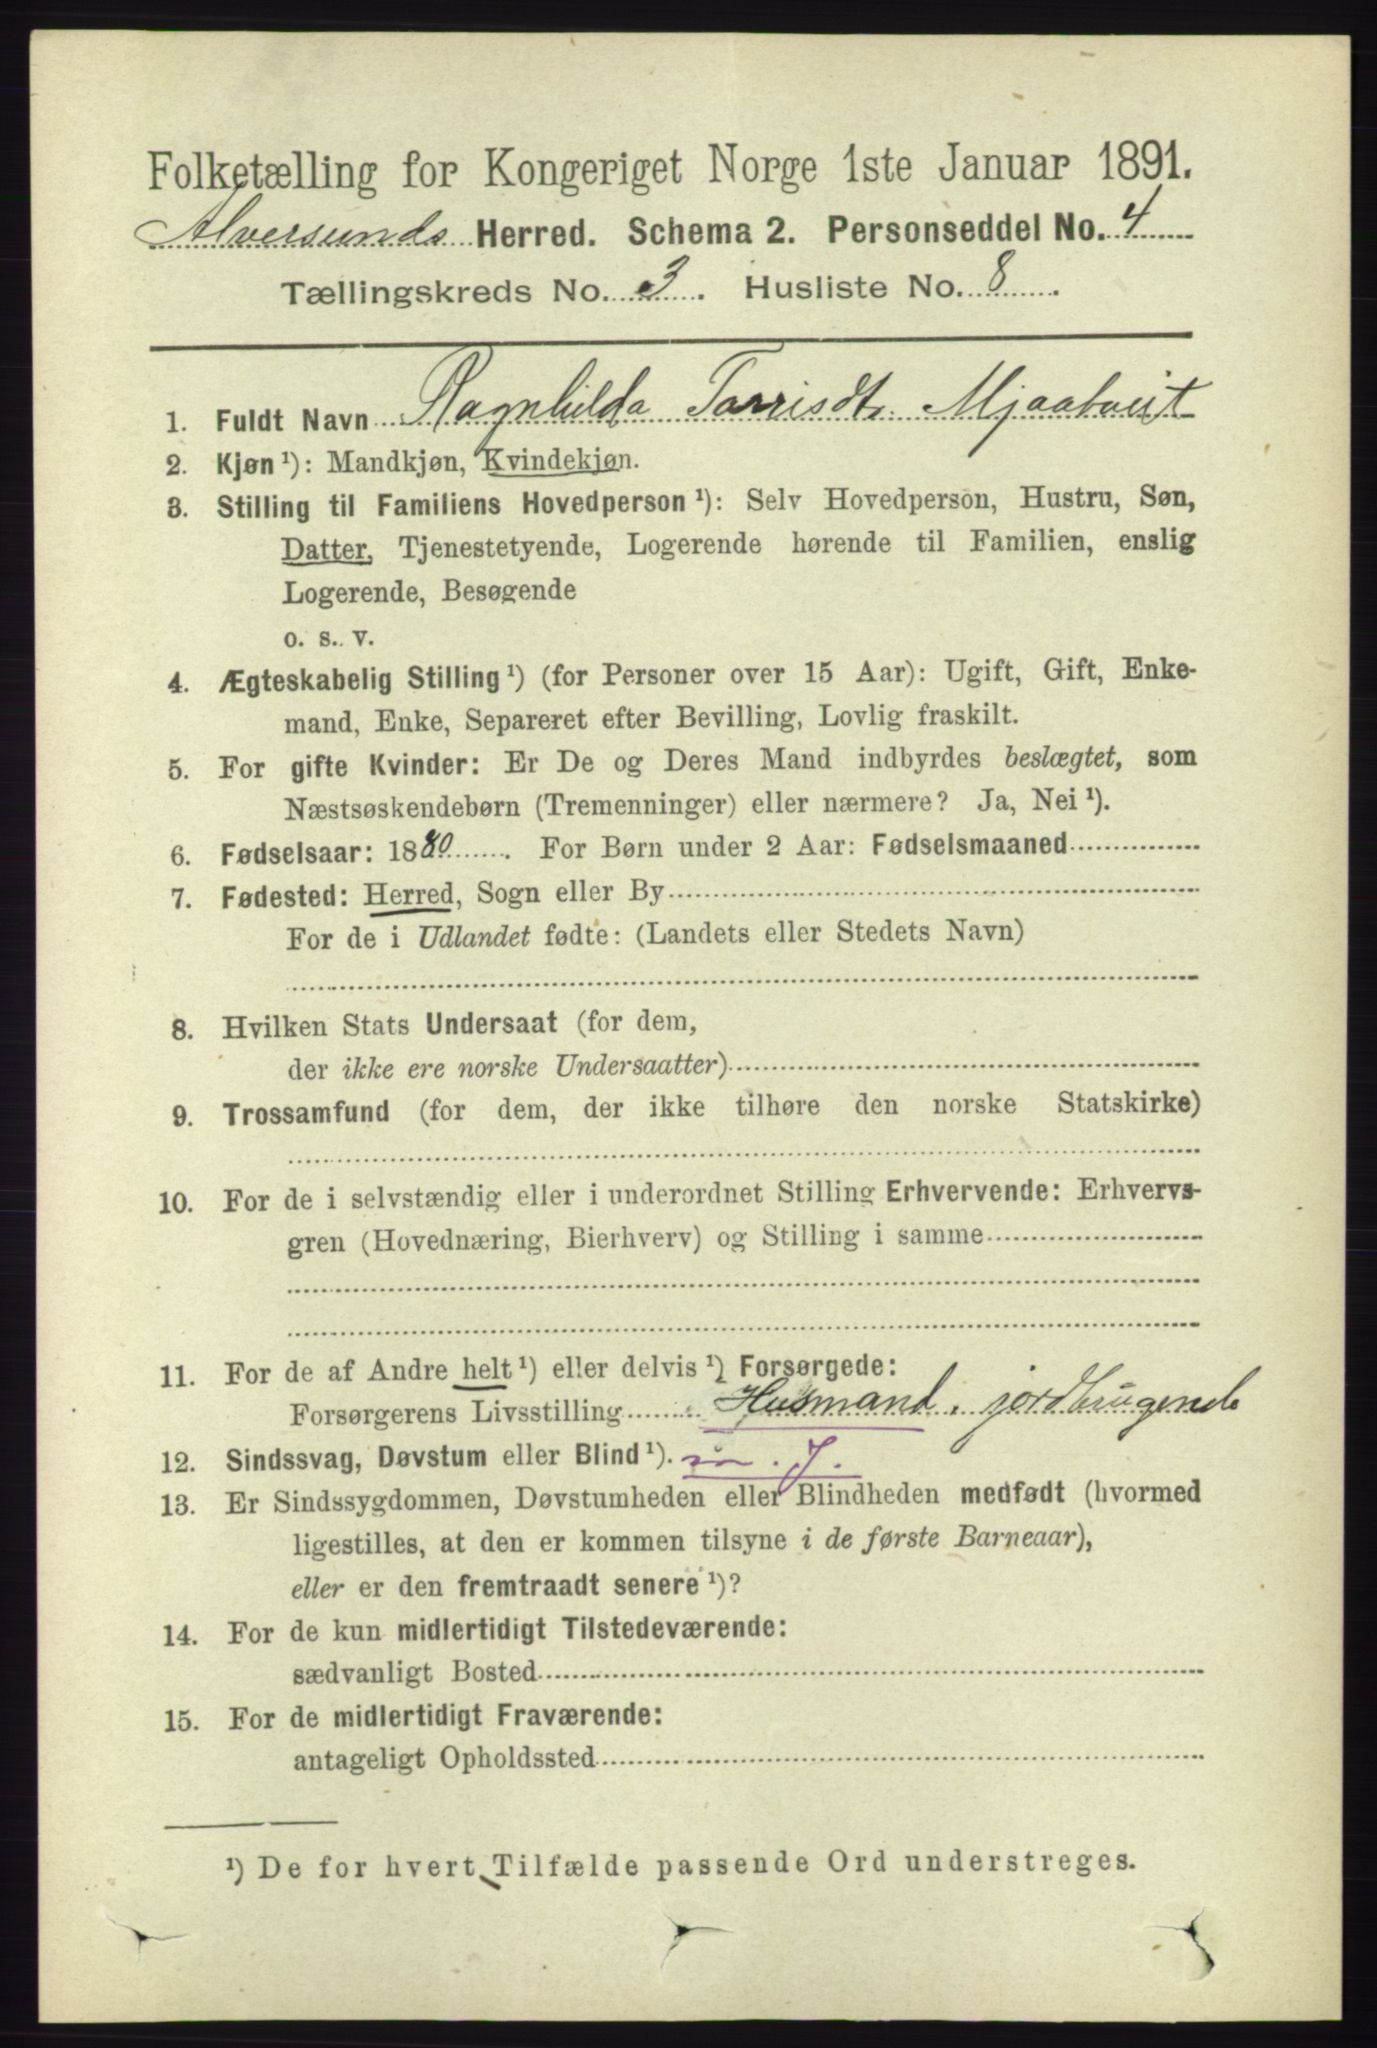 Folketælling for Kongeriget Norge 1ste Januar 1891.
Alversunds Herred. Schema 2. Personseddel No. 4
Tællingskreds No. 3. Husliste No. 8.
1. Fuldt Navn Ragnhilda Torrisdt. Mjaatveit
2. Kjøn¹): Mandkjøn, Kvindekjøn.
3. Stilling til Familiens Hovedperson¹): Selv Hovedperson, Hustru, Søn,
Datter, Tjenestetyende, Logerende hørende til Familien, enslig
Logerende, Besøgende
o. s. v.
4. Ægteskabelig Stilling¹) (for Personer over 15 Aar): Ugift, Gift, Enke-
mand, Enke, Separeret efter Bevilling, Lovlig fraskilt.
5. For gifte Kvinder: Er De og Deres Mand indbyrdes beslægtet, som
Næstsøskendebørn (Tremenninger) eller nærmere? Ja, Nei¹).
6. Fødselsaar: 1880. For Børn under 2 Aar: Fødselsmaaned
7. Fødested: Herred, Sogn eller By
For de i Udlandet fødte: (Landets eller Stedets Navn)
8. Hvilken Stats Undersaat (for dem,
der ikke ere norske Undersaatter)
9. Trossamfund (for dem, der ikke tilhøre den norske Statskirke)
10. For de i selvstændig eller i underordnet Stilling Erhvervende: Erhvervs-
gren (Hovednæring, Bierhverv) og Stilling i samme
11. For de af Andre helt¹) eller delvis¹) Forsørgede:
Forsørgerens Livsstilling Husmand, jordbrugende
12. Sindssvag, Døvstum eller Blind¹).
13. Er Sindssygdommen, Døvstumheden eller Blindheden medfødt (hvormed
ligestilles, at den er kommen tilsyne i de første Barneaar),
eller er den fremtraadt senere¹)?
14. For de kun midlertidigt Tilstedeværende:
sædvanligt Bosted
15. For de midlertidigt Fraværende:
antageligt Opholdssted
¹) De for hvert Tilfælde passende Ord understreges.